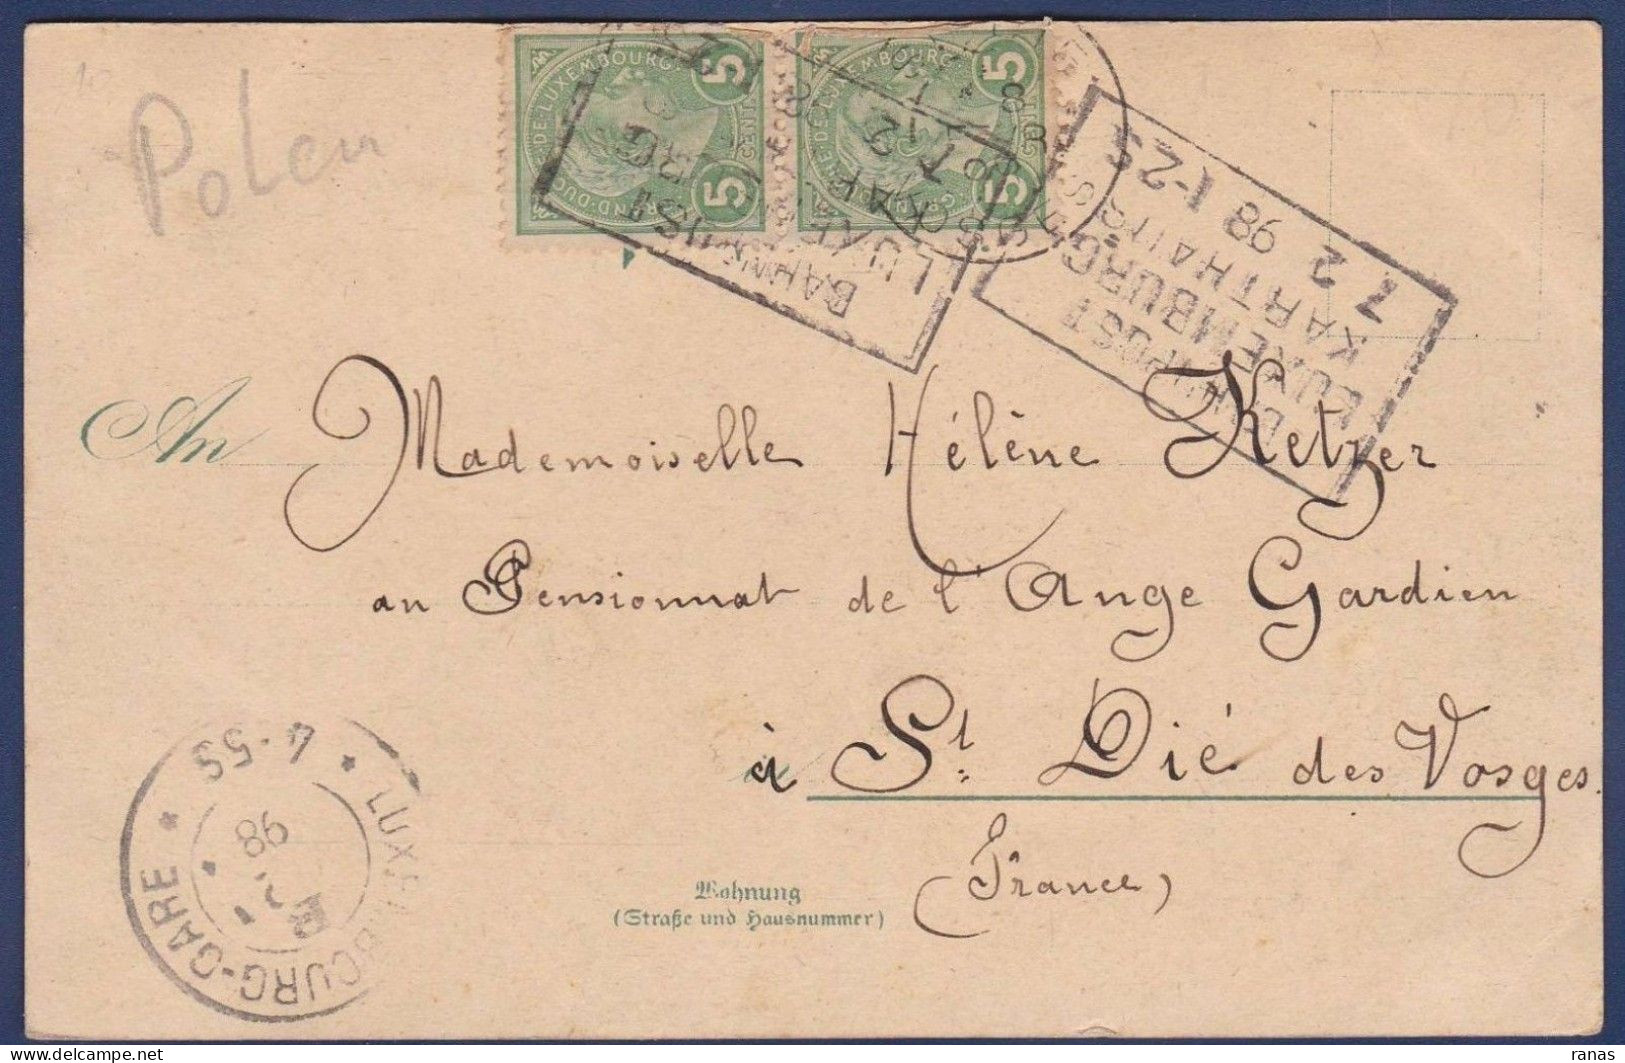 Polen
GRAND-DUCHÉ-DE-LUXEMBOURG
5 CENT. 5
GRAND-DUCHÉ-DE-LUXEMBOURG
5 CENT. 5
BAHNPOST
LUXEMBURG
BAHNPOST
LUXEMBURG
KARTHAUS
Z 2 1-2S
98
An Mademoiselle Hélène Ketzer
au Pensionnat de l'Ange Gardien
à St. Dié des Vosges.
(France)
Wohnung
(Straße und Hausnummer)
LUXEMBOURG-GARE
4-5S
98
ranas